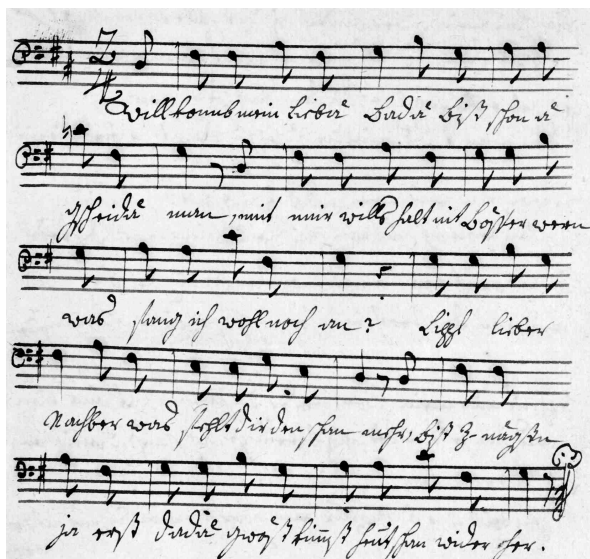 2/4
Willkomb mein lieba bada bist schon a
gscheida man, mit mir wills halt nit bösser wern
was fang ich wohl noch an? Lippl lieber
Nachber was fehlt dir den schan mehr, bist z-nägst
ja erst dada gwöst kimst heut schan wider her.